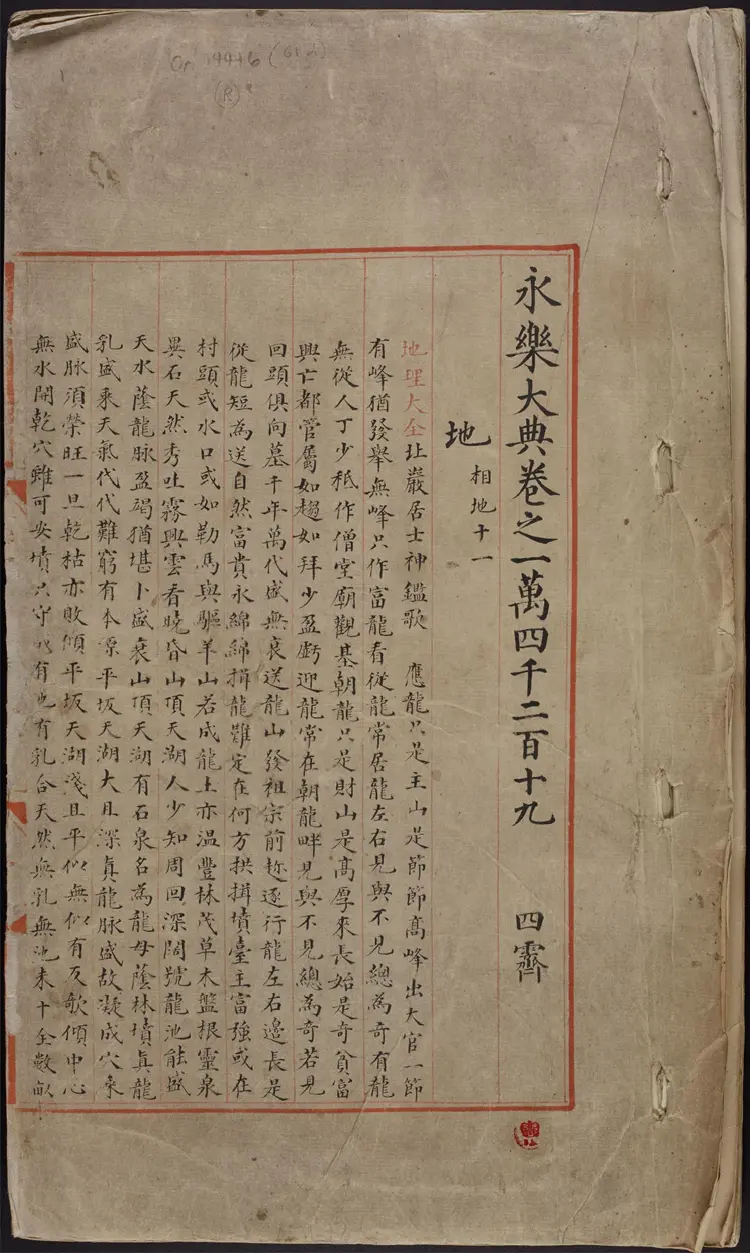 Or. 14446
(R)
永樂大典卷之一萬四千二百十九 四霽
地 相地十一
地理大全㘰巖居士神鑑歌 應龍只是主山是節節高峰出大官一節
有峰猶發舉無峰只作富龍看從龍常居龍左右見與不見總為奇有龍
無從人丁少秪作僧堂廟觀基朝龍只是財山是高厚來長始是奇貧富
興亡都管屬如趨如拜少盈虧迎龍常在朝龍畔見與不見總為奇若見
回頭俱向墓千年萬代盛無衰送龍山發祖宗前趂逐行龍左右邊長是
從龍短為送自然富貴永綿綿揖龍難定在何方拱揖墳臺主富強或在
村頭或水口或如勒馬與驅羊山若成龍土亦温豐林茂草木盤根靈泉
異石天然秀吐霧興雲看曉昏山頂天湖人少知周回深闊號龍池能盛
天水蔭龍脉盈竭猶堪卜盛衰山頂天湖有石泉名為龍母蔭林墳真龍
乳盛乘天氣代代難窮有本源平坂天湖大且深真龍脉盛故凝成穴乘
盛脉須榮旺一旦乾枯亦敗傾平坂天湖淺且平似無似有反歌傾中心
無水開乾穴雖可安墳只守 有也有乳合天然無乳無池未十全數畝